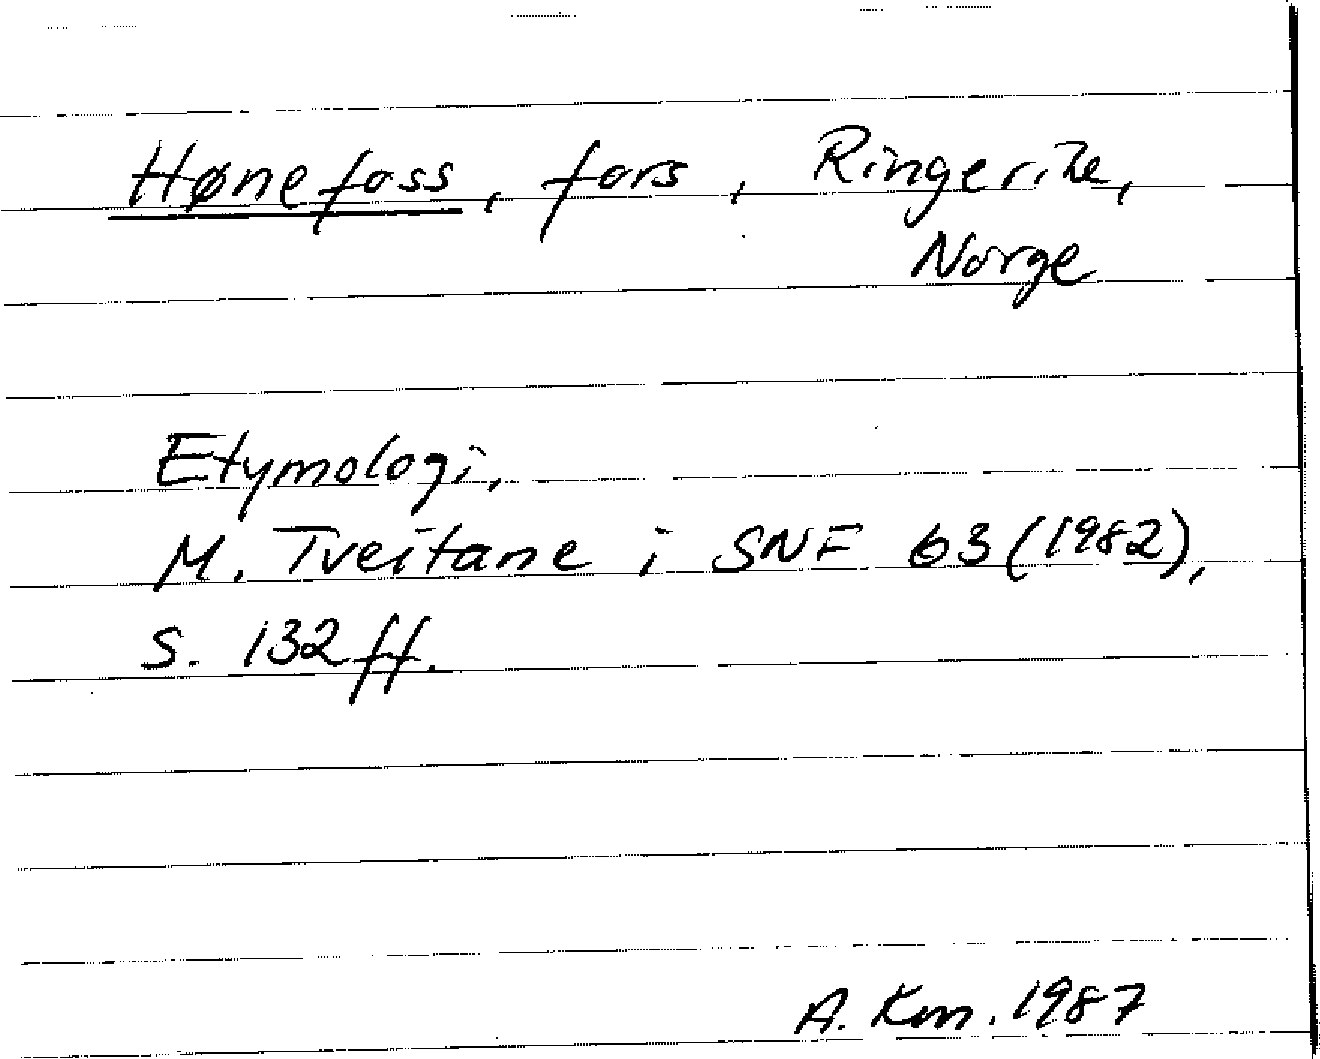 Hønefoss, fors, Ringerike,
Norge
Etymologi,
M. Tveitane i SNF 63 (1982),
S. 132 ff.
A. Km. 1987